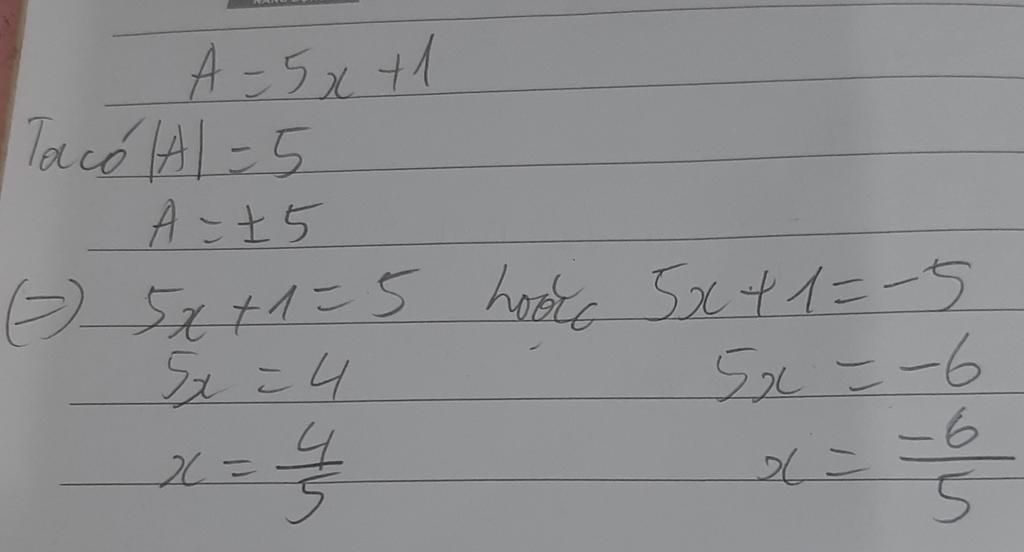 A = 5x + 1
Ta có |A| = 5
A = ± 5
(=) 5x + 1 = 5 hoặc 5x + 1 = -5
5x = 4 5x = -6
x = 4/5 x = -6/5